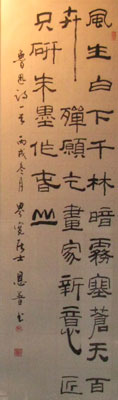 風生白下千林暗霧塞蒼天百
卉殫願乞畫家新意匠
只研朱墨作春山
魯迅詩一首 丙戌冬月 居士 書